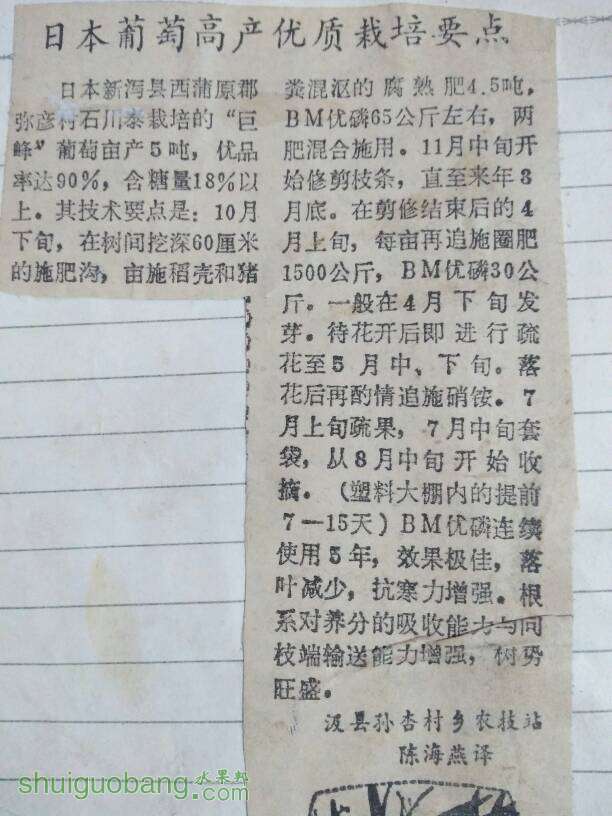 日本葡萄高产优质栽培要点
日本新泻县西蒲原郡
弥彦村石川泰栽培的“巨
峰”葡萄亩产5吨，优品
率达90%，含糖量18%以
上。其技术要点是：10月
下旬，在树间挖深60厘米
的施肥沟，亩施稻壳和猪
粪混沤的腐熟肥4.5吨，
BM优磷65公斤左右，两
肥混合施用。11月中旬开
始修剪枝条，直至来年3
月底。在剪修结束后的4
月上旬，每亩再追施圈肥
1500公斤，BM优磷30公
斤。一般在4月下旬发
芽。待花开后即进行疏
花至5月中、下旬。落
花后再酌情追施硝铵。7
月上旬疏果，7月中旬套
袋，从8月中旬开始收
摘。（塑料大棚内的提前
7—15天）BM优磷连续
使用5年，效果极佳，落
叶减少，抗寒力增强。根
系对养分的吸收能力与向
枝端输送能力增强，树势
旺盛。
汲县孙杏村乡农技站
陈海燕译
水果邦
shuiguobang.com